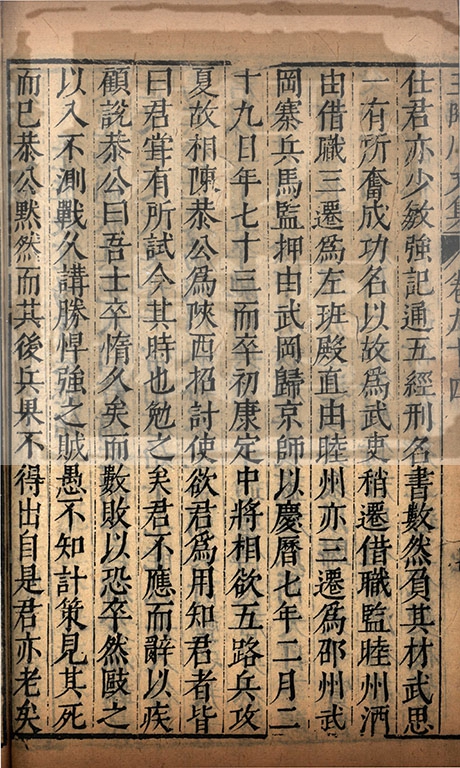 王臨川文集 卷九十四
仕君亦少敏強記通五經刑名書數然負其材武思
一有所奮成功名以故爲武吏稍遷借職監睦州洒
由借職三遷爲左班殿直由睦州亦三遷爲邵州武
岡寨兵馬監押由武岡歸京師以慶曆七年二月二
十九日年七十三而卒初康定中將相欲五路兵攻
夏故相陳恭公爲陝西招討使欲君爲用知君者皆
曰君嘗有所試今其時也勉之矣君不應而辭以疾
顧說恭公曰吾士卒惰久矣而數敗以恐卒然敺之
以入不測戰久講勝悍強之賊愚不知計策見其死
而已恭公黙然而其後兵果不得出自是君亦老矣